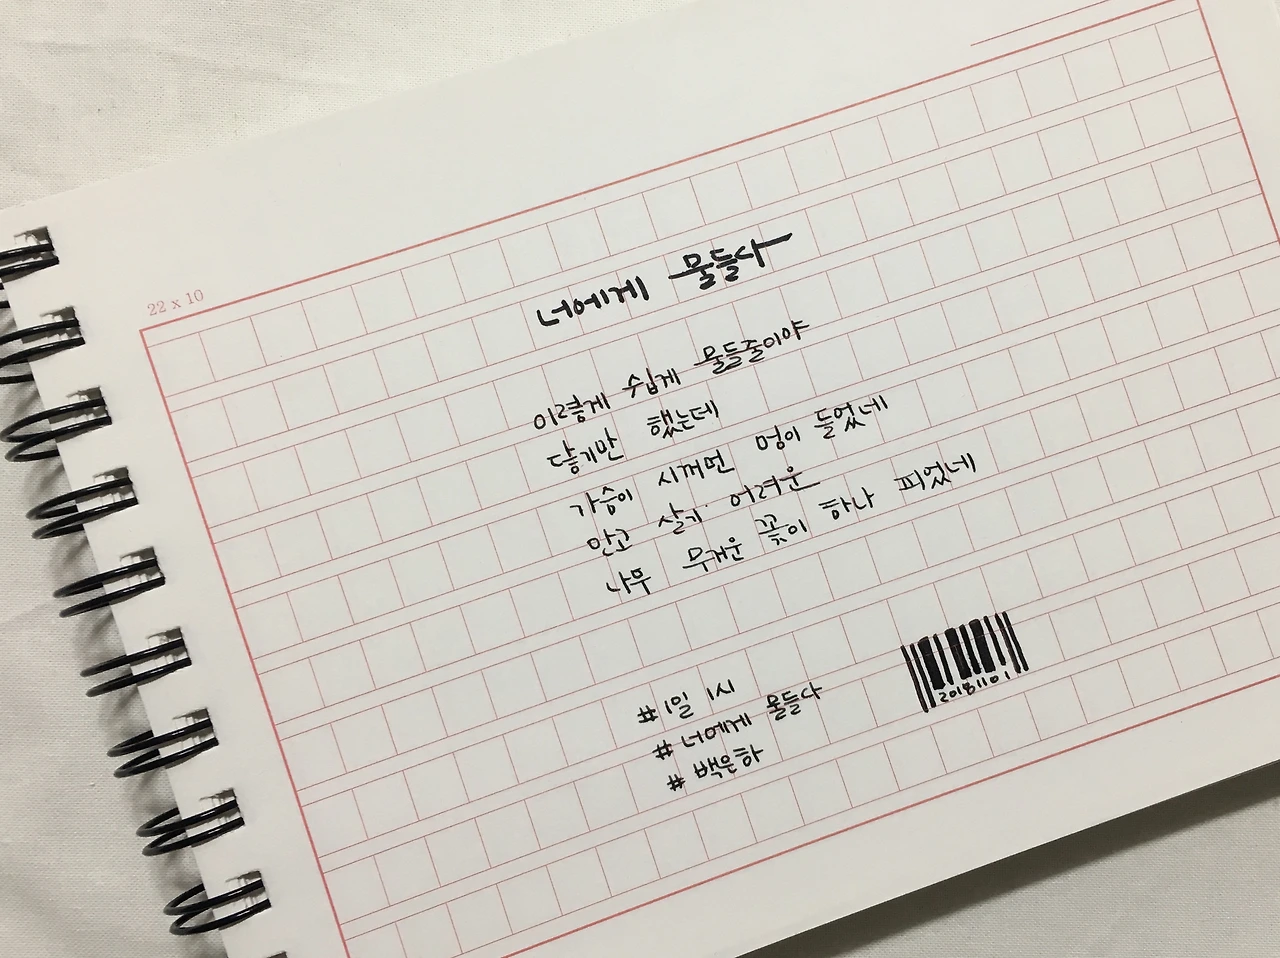 22 x 10
너에게 물들다
이렇게 쉽게 물들줄이야
닿기만 했는데
가슴이 시꺼먼 멍이 들었네
안고 살기 어려운
너무 무거운 꽃이 하나 피었네
#1일 1시
# 너에게 물들다
# 백은하
20181101